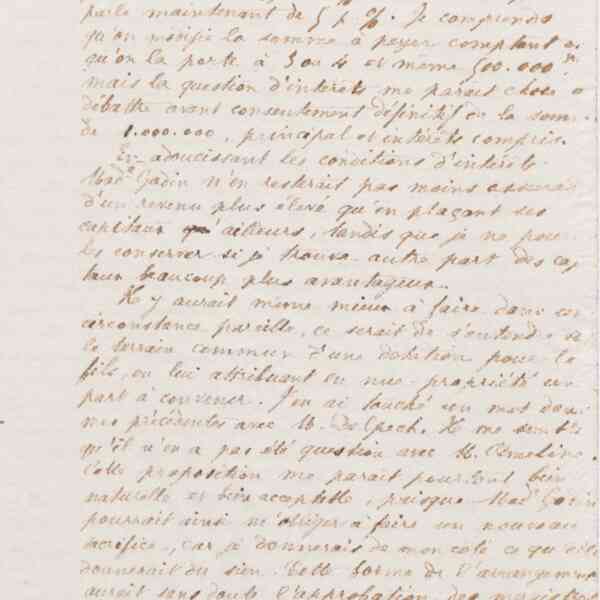 parle maintenant de 5 p %. Je comprends
qu'on modifie la somme à payer comptant
qu'on la porte à 3 ou 4 et même 500.000
mais la question d'intérêts me parait chose à
débattre avant consentement définitif
de 1.000.000, principal et intérêts compris.
En adoucissant les conditions d'intérêts
Made Gadin n'en resterait pas moins assurée
d'un revenu plus élevé qu'en plaçant ses
capitaux ailleurs, tandis que je ne
les conserver si je trouve autre part des
beaucoup plus avantageux.
Il y aurait même mieux à faire dans
circonstance pareille, ce serait de s'entendre
le terrain commun d'une dotation pour le
fils, en lui attribuant en nue-propriété une
part à convenir. J'en ai touché un mot dans
mes précédentes avec M. Delpech. Il me semble
qu'il n'en a pas été question avec M.
Cette proposition me parait pourtant bien
naturelle et bien acceptable, puisque Made Gadin
pourrait ainsi m'obliger à faire un nouveau
sacrifice, car je donnerais de mon côté ce qu'elle
donnerait du sien. Cette forme de l'arrangement
aurait sans doute l'approbation des magistrats